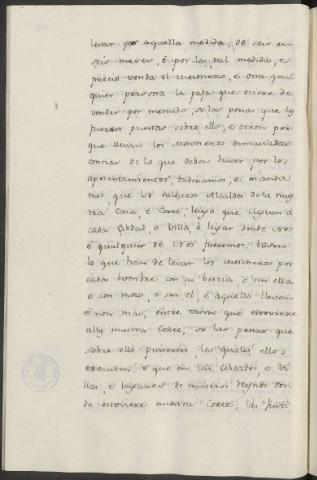 levar por aquella medida, de seis en
seis meses, é por la tal medida, e
precio venda el mesonero, é otra qual
quier persona la paja que oviere de
vender por menudo, so las penas que les
fueren puestas sobre ello, é otrosi por
que llevan los mesoneros demasiadas
contias de lo que deben haver por los
aposentamientos, Ordenamos, é manda
mos, que los nuestros Alcaldes de la nues
tra Casa, é Corte, luego que lleguen á
cada Cibdad, o Villa, ó lugar donde Nos
ó qualquier de Nos fueremos, tasen
lo que han de levar los mesoneros por
cada hombre con su bestia, é sin ella
ó con mozo, ó sin él, é aquello lleven
é non mas, entre tanto que estoviere
alli nuestra Corte, so las penas que
sobre ello pusieren las quales ellos
executen, é que en las Cibdades, é Vi
llas, é logares de nuestros Regnos don
de estoviere nuestra Corte, la Justi